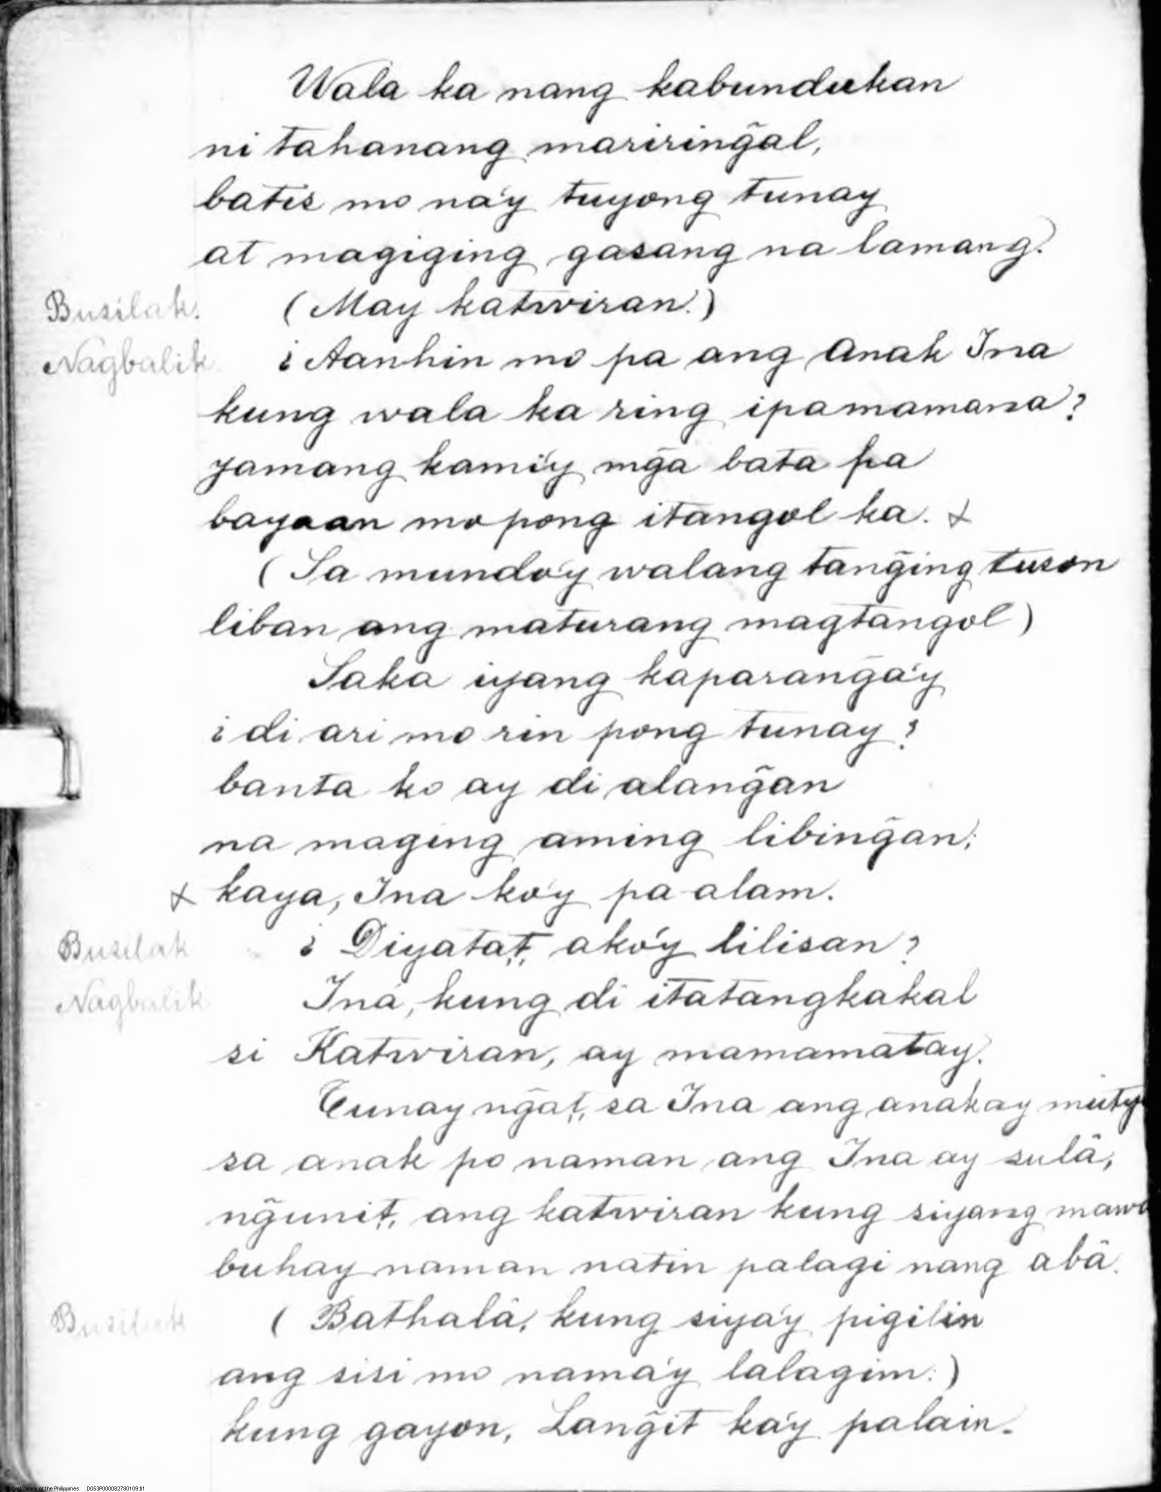 Wala ka nang kabundukan
ni tahanang mariring̃al,
batis mo na'y tuyong tunay
at magiging gasang na lamang.
Busilak. (May katwiran.)
Nagbalik ¿Aanhin mo pa ang Anak Ina
kung wala ka ring ipamamana?
yamang kami'y mg̃a bata pa
bayaan mo pong itangol ka. x
(Sa mundo'y walang tang̃ing tuson
liban ang maturang magtangol)
Saka iyang kaparang̃a'y
¿di ari mo rin pong tunay?
banta ko ay di alang̃an
na maging aming libing̃an;
x kaya, Ina ko'y pa-alam.
Busilak ¿Diyata't, ako'y lilisan?
Nagbalik Ina, kung di itatangkakal
si Katwiran, ay mamamatay.
Tunay ng̃a't, sa Ina ang anak ay mutya
sa anak po naman ang Ina ay sulâ,
ng̃uni't, ang katwiran kung siyang mawa
buhay naman natin palagi nang abâ.
Busilak (Bathalà, kung siya'y pigilin
ang sisi mo nama'y lalagim.)
kung gayon, Lang̃it ka'y palain.